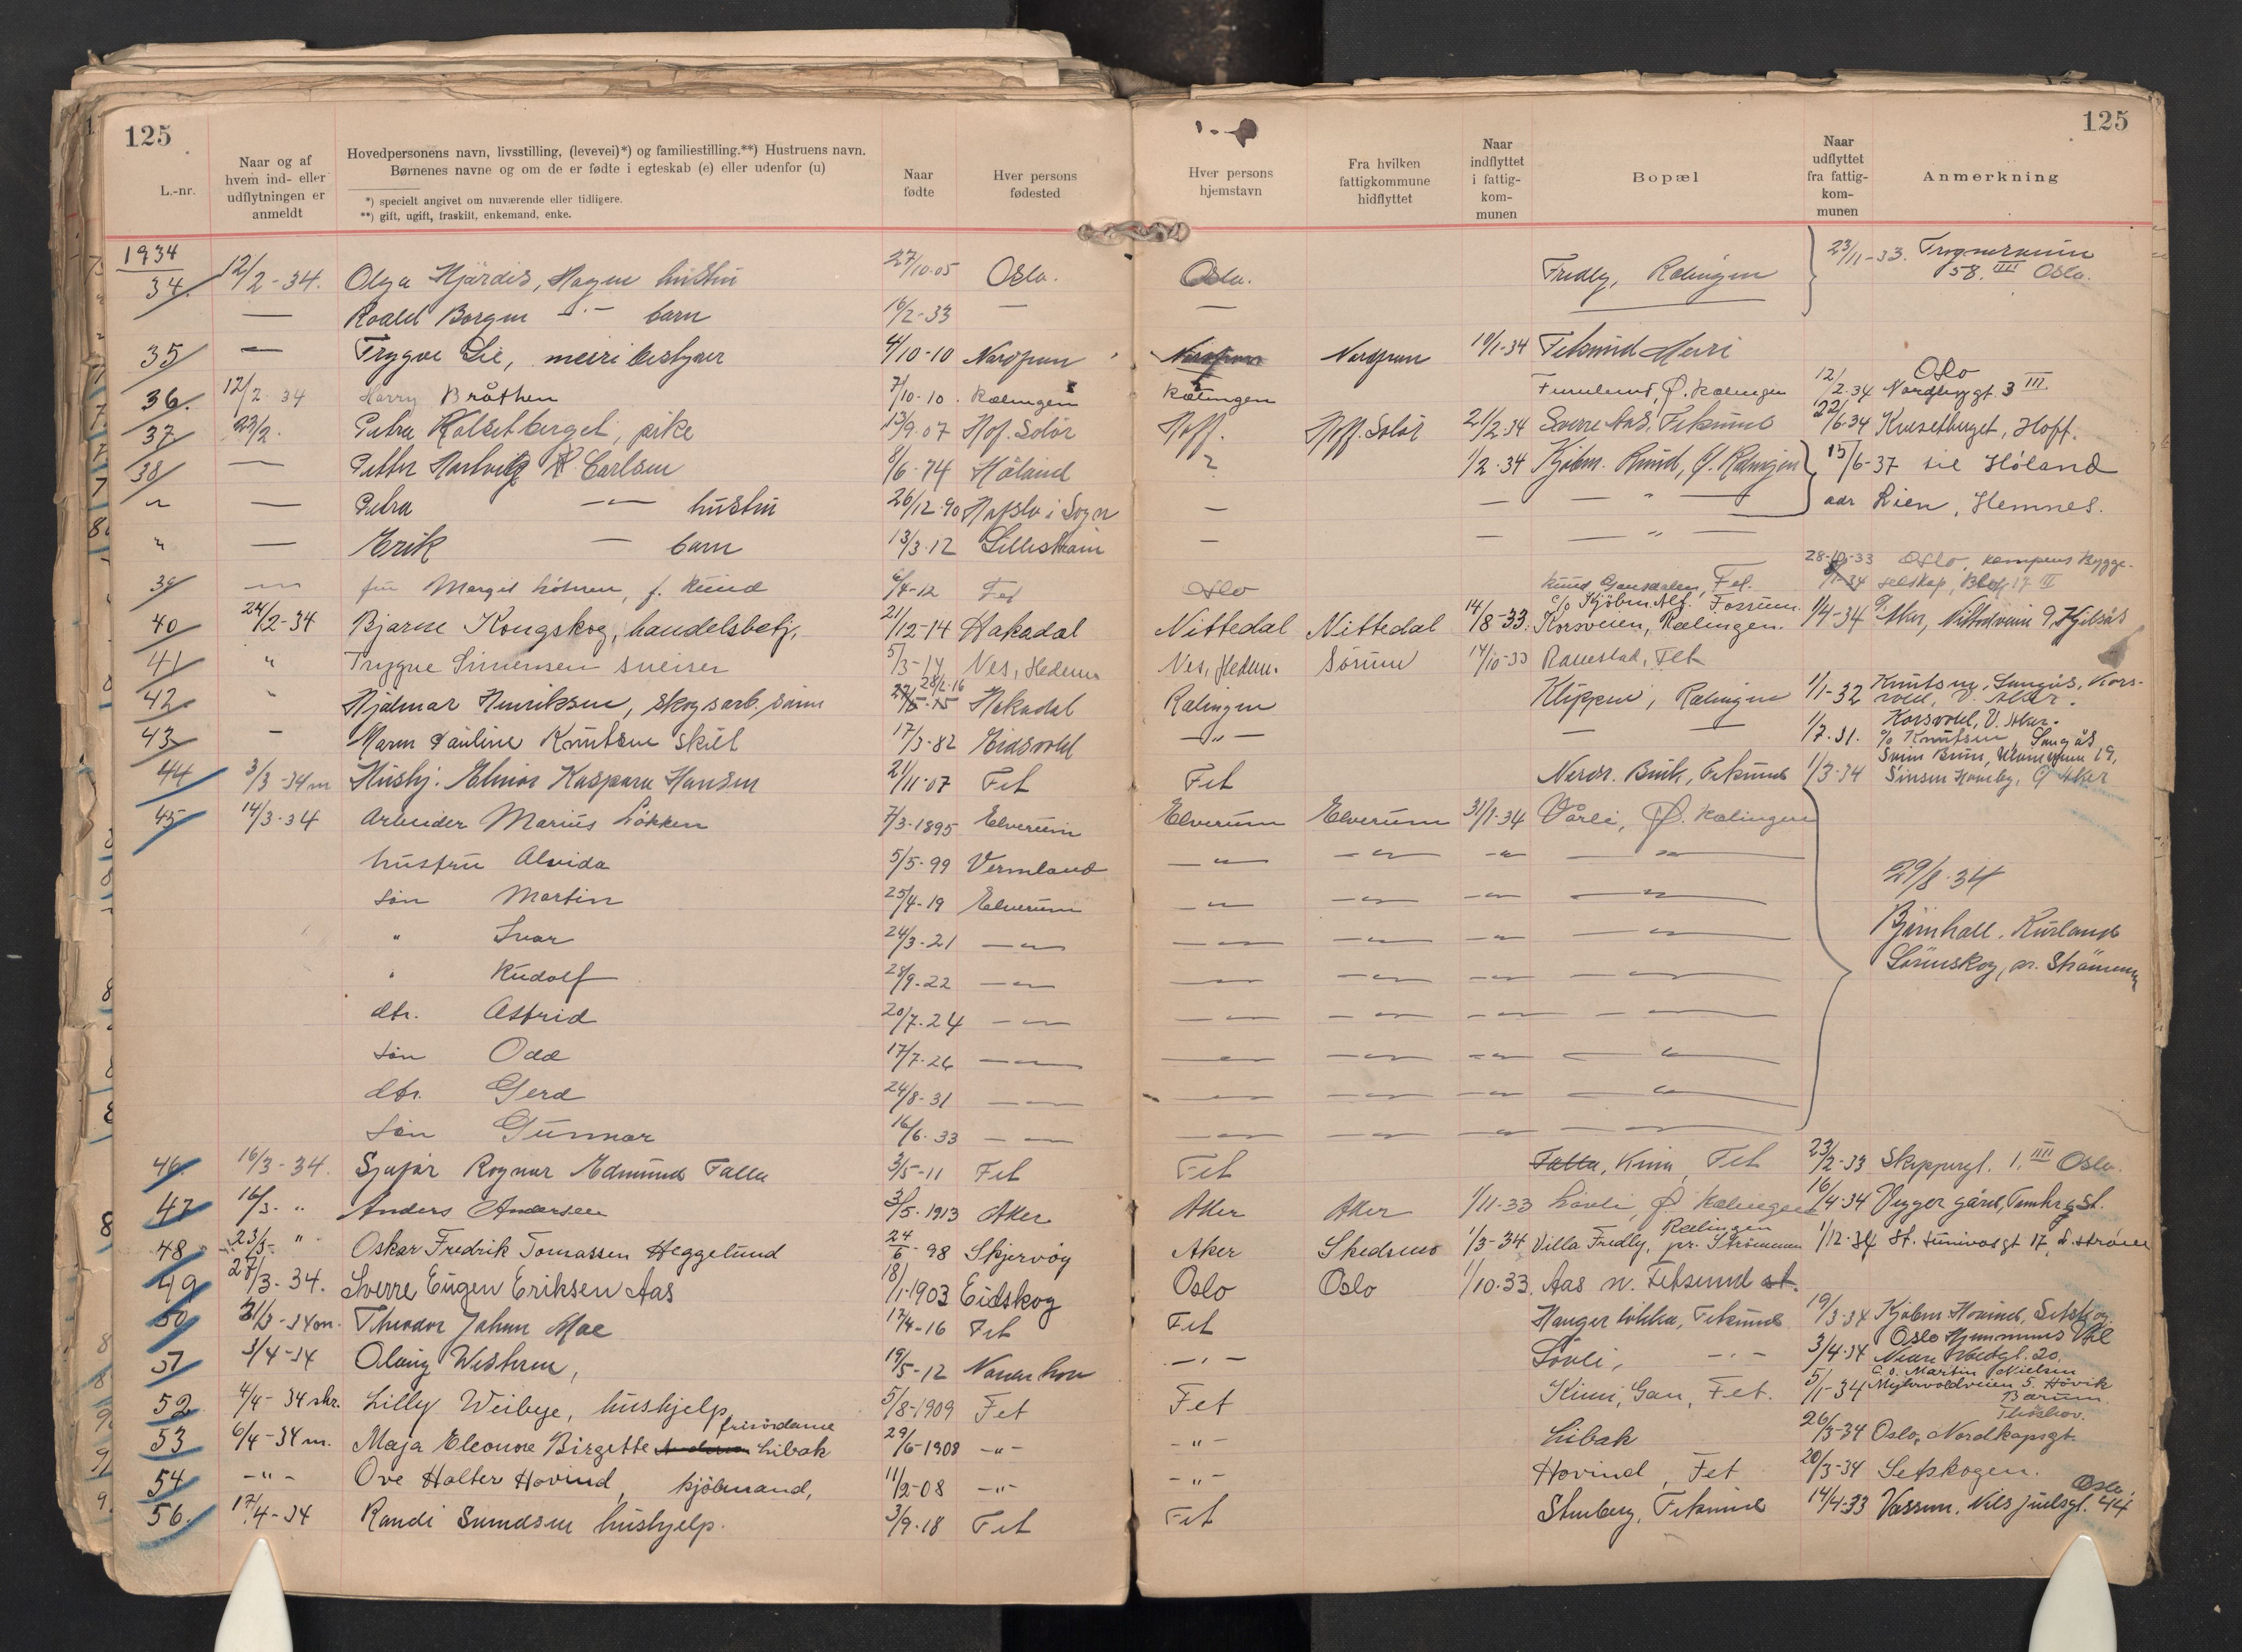 125
125
L.-nr.
Naar og af hvem ind- eller udflytningen er anmeldt
Hovedpersonens navn, livsstilling, (levevei)*) og familiestilling.**) Hustruens navn.
Børnenes navne og om de er fødte i egteskab (e) eller udenfor (u)
*) specielt angivet om nuværende eller tidligere.
**) gift, ugift, fraskilt, enkemand, enke.
Naar fødte
Hver persons fødested
Hver persons hjemstavn
Fra hvilken fattigkommune hidflyttet
Naar indflyttet i fattig-kom-munen
Bopæl
Naar udflyttet fra fattig-kom-munen
Anmerkning
1934
34. 12/2-34. Olga Hjördis, Hagen hustru 27/10-05 Oslo. Oslo. Fredly, Rælingen 23/11-33. 58. III Oslo.
— Roald Borgen -"- barn 16/2-33 — —
35 — Trygve Lie, meieribestyrer 4/10-10 19/1-34 Fetsund Meieri
36. 12/2 34 Harry Bråthen 7/10-10. Rælingen Rælingen Furulund, Ø. Rælingen 12/2-34 Oslo Nordbygt. 3 III
37 23/2. Petra pike 13/9-07 Hof. Solör Hoff. Hoff. Solör 21/2-34 Sverre Aas, Fetsund 22/6-34 Hoff.
38 — Petter Hartvig R. Carlsen 8/6-74 Höland ? 1/2-34 Kjöbm. Rund, Ø. Rælingen 15/6-37 til Höland
" — Petra -"- hustru 26/12-90 Hafslo i Sogn — — — " — adr Lien, Hemnes.
" — Erik — barn 13/3-12 Lilleström — — — " —
39 -"- fru Margit f. Rund 6/4-12 Fet Oslo Rund Fet. 28-10-33 Oslo, Kampens Bygge-
selskap, 17 II
40 24/2-34 Bjarne Kongskog, handelsbetj. 21/12-14 Hakadal Nittedal Nittedal 14/8-33. c/o Kjöbm. Alf. Fossum. Korsveien, Rælingen. 1/4-34 Ø. Aker, 9, Kjelsås
41 " Trygve Simensen sveiser 5/3-14 Nes, Hedem. Nes, Hedem. Sørum 14/10-33 Ramstad, Fet
42. " Hjalmar Henriksen, skogsarb. sønn 28/2-16 Hakadal Rælingen Klippen, Rælingen 1/1-32 Knutsen, Langås, Kors-
voll, V. Aker.
43 - Maren Pauline Knutsen skilt 17/3-82 Eidsvold -"- — — 1/7-31. Korsvoll, V. Aker. c/o Knutsen, Langås
44 3/3-34 m Hushj. Elinor Kaspara Hansen 21/11-07 Fet Fet Nerdr. Fetsund 1/3-34 Sinsen Haveby, Ø. Aker
45 14/3-34 Arbeider Marius Løkken 7/3-1895 Elverum Elverum Elverum 31/1-34 Vårli, Ø. Rælingen
hustru Alvida 5/5-99 Vermland -"- -"- -"- -"-
søn Martin 25/4-19 Elverum -"- -"- -"- -"- 29/8-34
" Ivar 24/3-21 -"- -"- -"- -"- -"- Bjørnhall. Rurland
" Rudolf 28/9-22 -"- -"- -"- -"- -"- Lörenskog, pr. Strömmen
dtr. Astrid 20/7-24 -"- -"- -"- -"- -"-
søn Odd 17/7-26 -"- -"- -"- -"- -"-
dtr. Gerd 24/8-31 -"- -"- -"- -"- -"-
søn Gunnar 16/6-33 -"- -"- -"- -"- -"-
46. 16/3-34. Sjåfør Ragnar Edmund Falla 3/5-11 Fet Fet Falla, Fet 23/2-33 Skippergt. 1. IIII Oslo.
47 16/3- " Anders Andersen 3/5-1913 Aker Aker Aker 1/11-33 Løvli, Ø. Rælingen 16/4-34
48 23/3- " Oskar Fredrik Tomassen Heggelund 24/6-98 Skjervöy Aker Skedsmo 1/3-34 Villa Fredly, pr. Strömmen Rælingen 1/12-34 St. Sunivasgt 17, L.ström
49 27/3-34. Sverre Eugen Eriksen Aas 18/1-1903 Eidskog Oslo Oslo 1/10-33. Aas n. Fetsund st.
50 31/3-34m. Theodor Johan Moe 17/4-16 Fet Fet Hanger løkka, Fetsund 19/3-34 Kjøbm Hovind, Setskog.
51 3/4-34 Olaug Westeren, 19/5-12 -"- Løvli, -"- 3/4-34 Oslo
52 4/4-34 skr. Lilly Weibye, hushjelp 5/8-1909 Fet Fet Kinn, Gan, Fet. 5/1-34 C. o. Martin Nielsen Myhrvoldveien 5. Hövik Bærum.
53 6/4-34 m. Maja Eleonore Birgette Libak frisördame 29/6-1908 -"- -"- Libak 26/3-34 Oslo, Nordkapsgt. Theshov.
54 -"- Ove Halter Hovind, kjöbmand, 11/2-08 -"- -"- Hovind, Fet 20/3-34 Setskogen.
56. 17/4-34 Randi hushjelp. 3/9-18 Fet Fet Stenberg, Fetsund 14/4-33 Nils Juelsgt. 44 Oslo.